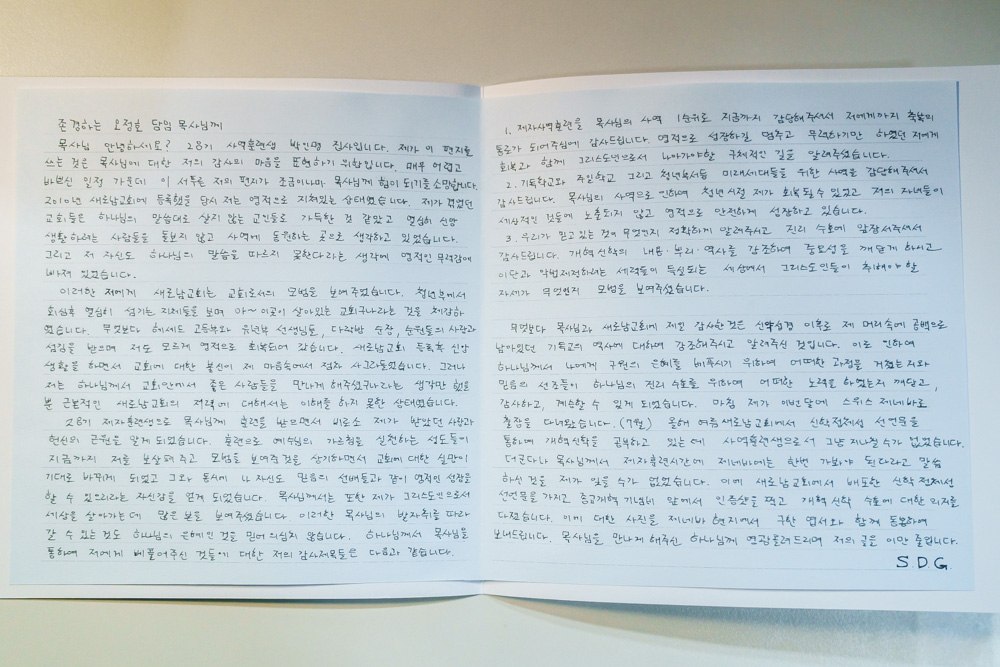 존경하는 오정호 담임 목사님께
목사님 안녕하세요? 28기 사역훈련생 박인명 집사입니다. 제가 이 편지를
쓰는 것은 목사님에 대한 저의 감사의 마음을 표현하기 위함입니다. 매우 어렵고
바쁘신 일정 가운데 이 서투른 저의 편지가 조금이나마 목사님께 힘이 되기를 소망합니다.
2010년 새로남교회에 등록했을 당시 저는 영적으로 지쳐있는 상태였습니다. 제가 겪었던
교회들은 하나님의 말씀대로 살지 않는 교인들로 가득한 것 같았고 열심히 신앙
생활하려는 사람들을 돌보지 않고 사역에 동원하는 곳으로 생각하고 있었습니다.
그리고 저 자신도 하나님의 말씀을 따르지 못한다라는 생각에 영적인 무력감에
빠져 있었습니다.
이러한 저에게 새로남교회는 교회로서의 모범을 보여주었습니다. 청년부에서
회심후 열심히 섬기는 지체들을 보며 아~이곳이 살아있는 교회구나라는 것을 체감하
였습니다. 무엇보다 헤세드 고등부와 유년부 선생님들, 다락방 순장, 순원들의 사랑과
섬김을 받으며 저도 모르게 영적으로 회복되어 갔습니다. 새로남교회 등록후 신앙
생활을 하면서 교회에 대한 불신이 제 마음속에서 점차 사그라들었습니다. 그러나
저는 하나님께서 교회안에서 좋은 사람들을 만나게 해주셨구나라는 생각만 했을
뿐 근본적인 새로남교회의 저력에 대해서는 이해를 하지 못한 상태였습니다.
28기 제자훈련생으로 목사님께 훈련을 받으면서 비로소 제가 받았던 사랑과
헌신의 근원을 알게 되었습니다. 훈련으로 예수님의 가르침을 실천하는 성도들이
지금까지 저를 보살펴주고 모범을 보여준것을 상기하면서 교회에 대한 실망이
기대로 바뀌게 되었고 그와 동시에 나 자신도 믿음의 선배들과 같이 영적인 성장을
할 수 있으리라는 자신감을 얻게 되었습니다. 목사님께서는 또한 제가 그리스도인으로서
세상을 살아가는데 많은 본을 보여주셨습니다. 이러한 목사님의 발자취를 따라
갈 수 있는 것도 하나님의 은혜인 것을 믿어 의심치 않습니다. 하나님께서 목사님을
통하여 저에게 베풀어주신 것들에 대한 저의 감사제목들은 다음과 같습니다.
1. 제자사역훈련을 목사님의 사역 1순위로 지금까지 감당해주셔서 저에게까지 축복의
통로가 되어주심에 감사드립니다. 영적으로 성장하길 멈추고 무력하기만 하였던 저에게
회복과 함께 그리스도인으로서 나아가야할 구체적인 길을 알려주셨습니다.
2. 기독학교와 주일학교 그리고 청년부서등 미래세대들을 위한 사역을 감당해주셔서
감사드립니다. 목사님의 사역으로 인하여 청년시절 제가 회복될수 있었고 저의 자녀들이
세상적인 것들에 노출되지 않고 영적으로 안전하게 성장하고 있습니다.
3. 우리가 믿고 있는 것이 무엇인지 정확하게 알려주시고 진리 수호에 앞장서주셔서
감사드립니다. 개혁 신학의 내용·뿌리·역사를 강조하여 중요성을 깨닫게 하시고
이단과 악법제정하려는 세력들이 득실되는 세상에서 그리스도인들이 취해야 할
자세가 무엇인지 모범을 보여주셨습니다.
무엇보다 목사님과 새로남교회에 제일 감사한것은 신약성경 이후로 제 머리속에 공백으로
남아있던 기독교의 역사에 대하여 강조해주시고 알려주신 것입니다. 이로 인하여
하나님께서 나에게 구원의 은혜를 베푸시기 위하여 어떠한 과정을 거쳤는지와
믿음의 선조들이 하나님의 진리 수호를 위하여 어떠한 노력을 하였는지 깨닫고,
감사하고, 계승할 수 있게 되었습니다. 마침 제가 이번달에 스위스 제네바로
출장을 다녀왔습니다. (7월) 올해 여름새로남교회에서 신학정체성 선언문을
통하여 개혁신학을 공부하고 있는데 사역훈련생으로서 그냥 지나칠수가 없었습니다.
더군다나 목사님께서 제자훈련시간에 제네바에는 한번 가봐야 된다라고 말씀
하신 것을 제가 잊을 수가 없었습니다. 이에 새로남교회에서 배포한 신학정체성
선언문을 가지고 종교개혁 기념비 앞에서 인증샷을 찍고 개혁신학 수호에 대한 의지를
다졌습니다. 이에 대한 사진을 제네바 현지에서 구한 엽서와 함께 동봉하여
보내드립니다. 목사님을 만나게 해주신 하나님께 영광올려드리며 저의 글을 이만 줄입니다.
S.D.G.